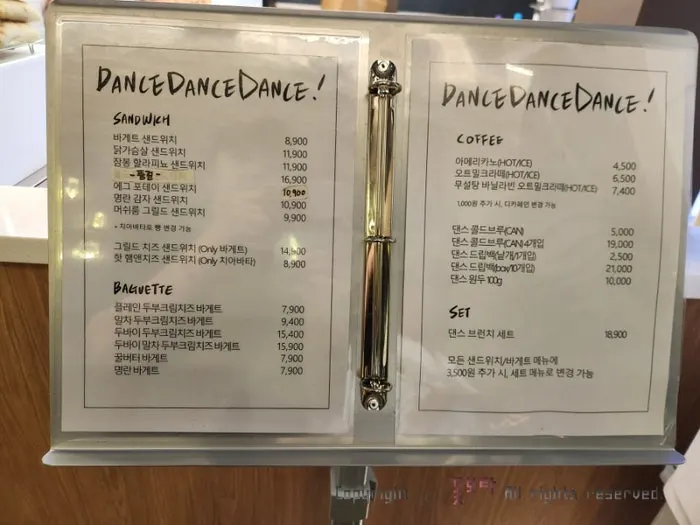 DANCEDANCEDANCE!
SANDWICH
바게트 샌드위치 8,900
닭가슴살 샌드위치 11,900
잠봉 할라피뇨 샌드위치 11,900
-품절- 16,900
에그 포테이 샌드위치 10,900
명란 감자 샌드위치 10,900
머쉬룸 그릴드 샌드위치 9,900
+ 치아바타로 빵 변경 가능
그릴드 치즈 샌드위치 (Only 바게트) 14,900
핫 햄앤치즈 샌드위치 (Only 치아바타) 8,900
BAGUETTE
플레인 두부크림치즈 바게트 7,900
말차 두부크림치즈 바게트 9,400
두바이 두부크림치즈 바게트 15,400
두바이 말차 두부크림치즈 바게트 15,900
꿀버터 바게트 7,900
명란 바게트 7,900
DANCEDANCEDANCE!
COFFEE
아메리카노(HOT/ICE) 4,500
오트밀크라떼(HOT/ICE) 6,500
무설탕 바닐라빈 오트밀크라떼(HOT/ICE) 7,400
1,000원 추가 시, 디카페인 변경 가능
댄스 콜드브루(CAN) 5,000
댄스 콜드브루(CAN) 4개입 19,000
댄스 드립백(낱개/1개입) 2,500
댄스 드립백(box/10개입) 21,000
댄스 원두 100g 10,000
SET
댄스 브런치 세트 18,900
모든 샌드위치/바게트 메뉴에
3,500원 추가 시, 세트 메뉴로 변경 가능
Copyright All rights reserved.